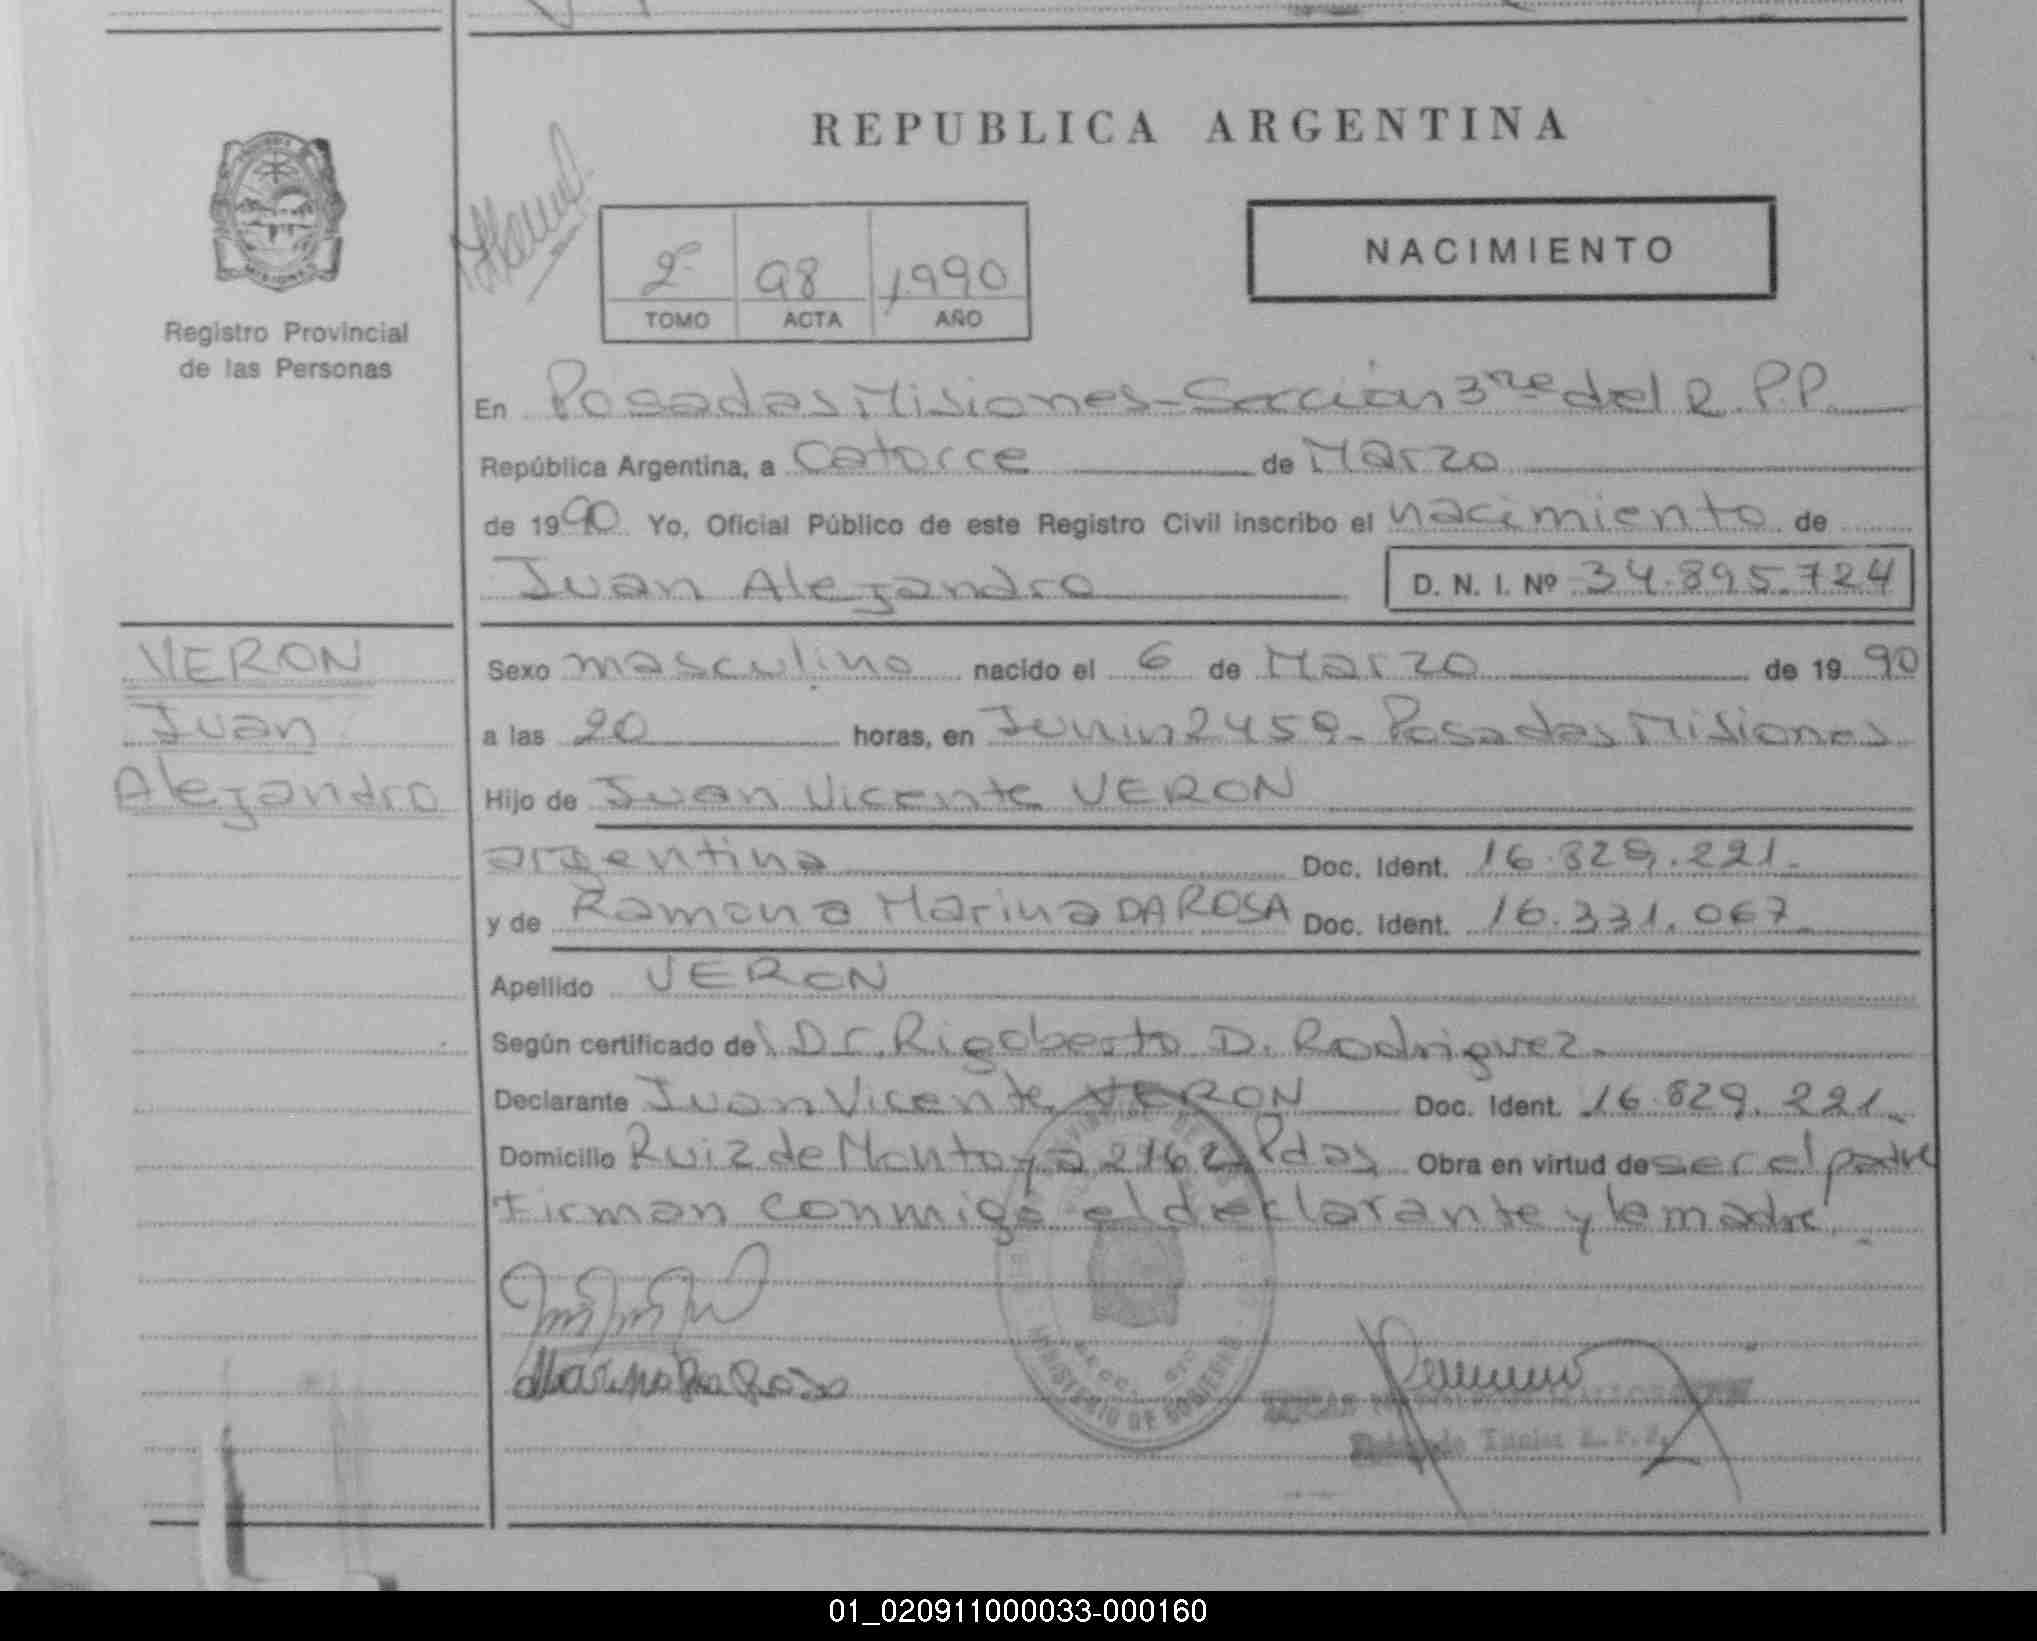 REPUBLICA ARGENTINA
NACIMIENTO
2º 98 1990
TOMO ACTA AÑO
Registro Provincial
de las Personas
En Posadas Misiones - Sección 3ra del R.P.P.
República Argentina, a Catorce de Marzo
de 1990 Yo, Oficial Público de este Registro Civil inscribo el nacimiento de
Juan Alejandro D. N. I. Nº 34.895.724
VERON
Juan
Alejandro
Sexo masculino nacido el 6 de Marzo de 1990
a las 20 horas, en Junin 2459 - Posadas Misiones
Hijo de Juan Vicente VERON
argentina Doc. Ident. 16.829.221.
y de Ramona Marina DA ROSA Doc. Ident. 16.331.067
Apellido VERON
Según certificado del Dr. Rigoberto D. Rodriguez.
Declarante Juan Vicente VERON Doc. Ident. 16.829.221.
Domicilio Ruiz de Montoya 2162 Pdas Obra en virtud de ser el padre
Firman conmigo el declarante y la madre.
Marina Da Rosa
MINISTERIO DE GOBIERNO
01_020911000033-000160